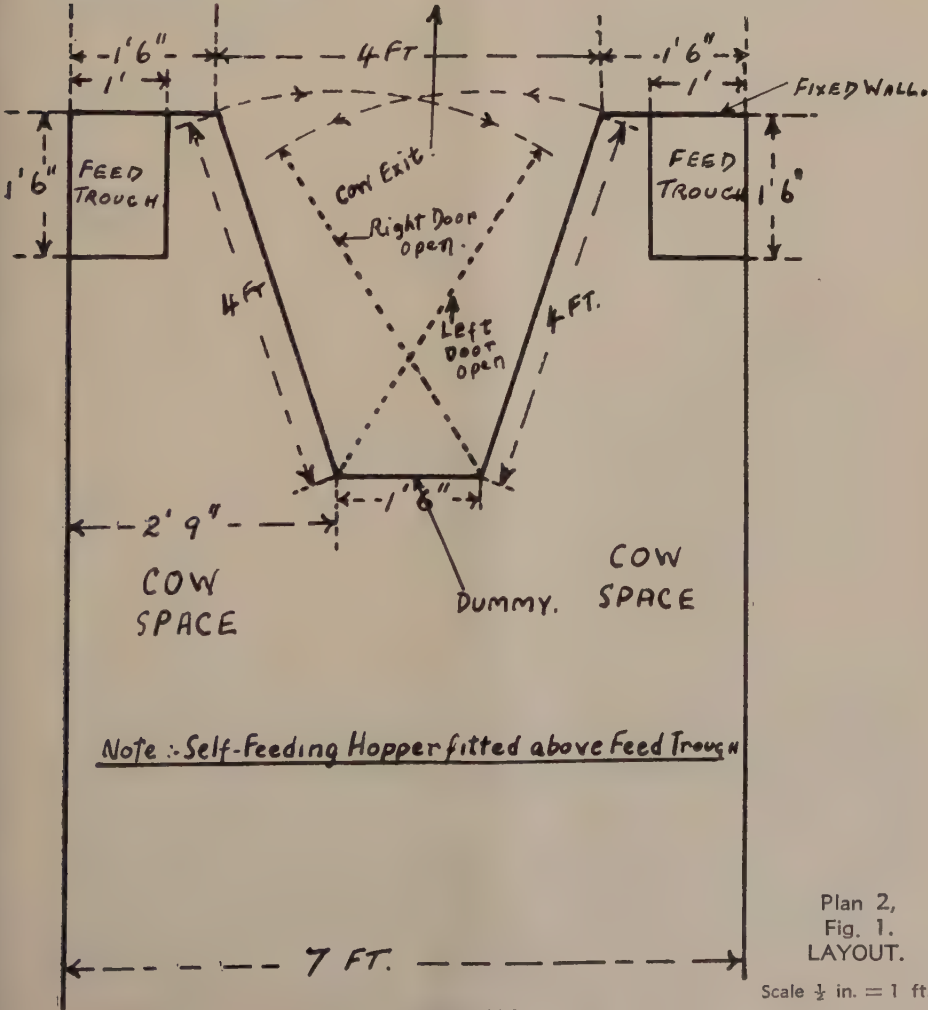 1'6"
4 FT
1'6"
1'
1'
FIXED WALL.
FEED
TROUGH
1'6"
FEED
TROUGH
1'6"
Cow Exit.
Right Door
open.
4 FT
4 FT.
Left
Door
open
1'6"
2' 9"
COW
SPACE
DUMMY.
COW
SPACE
Note :- Self-Feeding Hopper fitted above Feed Trough
7 FT.
Plan 2,
Fig. 1.
LAYOUT.
Scale ½ in. = 1 ft